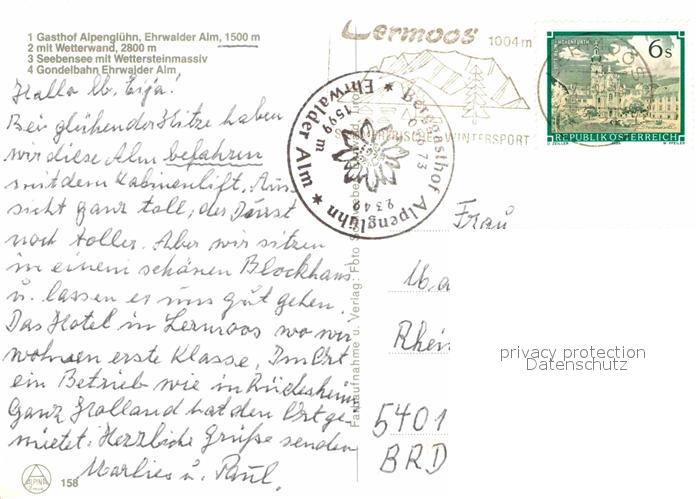 1 Gasthof Alpenglühn, Ehrwalder Alm, 1500 m
2 mit Wetterwand, 2800 m
3 Seebensee mit Wettersteinmassiv
4 Gondelbahn Ehrwalder Alm
Hallo lb. Eija!
Bei glühender Hitze haben
wir diese Alm befahren
mit dem Kabinenlift, Aus-
sicht ganz toll, der Durst
noch toller. Aber wir sitzen
in einem schönen Blockhaus
u. lassen es uns gut gehen.
Das Hotel in Lermoos wo wir
wohnen erste Klasse. Im Ort
ein Betrieb wie in Rüdesheim
Ganz Holland hat den Ort ge-
mietet. Herzliche Grüße senden
Marlies u. Paul.
ALPINA
158
Farbaufnahme u. Verlag: Foto
Lermoos 1004 m
WINTERSPORT
Berggasthof Alpenglühn * Ehrwalder Alm *
1599 m
6s
REPUBLIK ÖSTERREICH
O. ZEILLER
W. PFEILER
Frau
Rhein
5401
BRD
privacy protection
Datenschutz